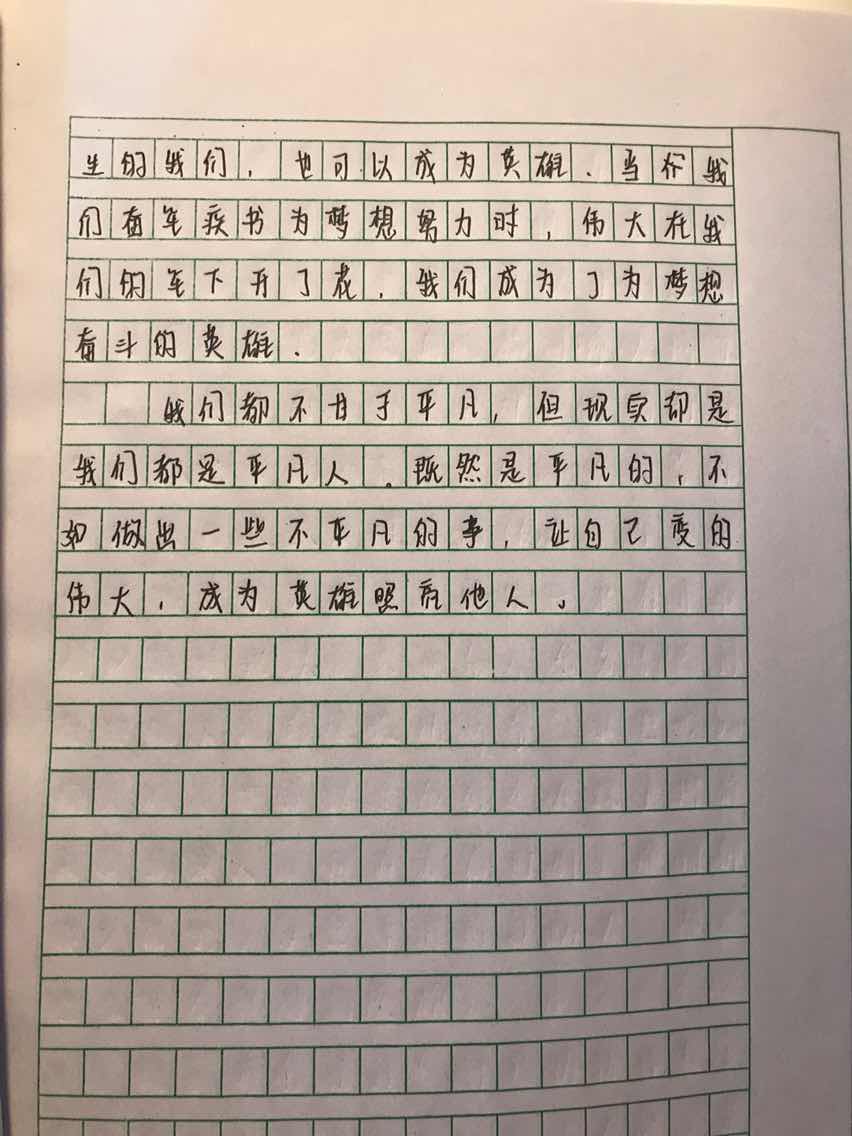 生的我们，也可以成为英雄．当你我
们奋笔疾书为梦想努力时，伟大在我
们的笔下开了花．我们成为了为梦想
奋斗的英雄．
我们都不甘于平凡，但现实却是
我们都是平凡人。既然是平凡的，不
如做出一些不平凡的事，让自己变的
伟大，成为英雄照亮他人。